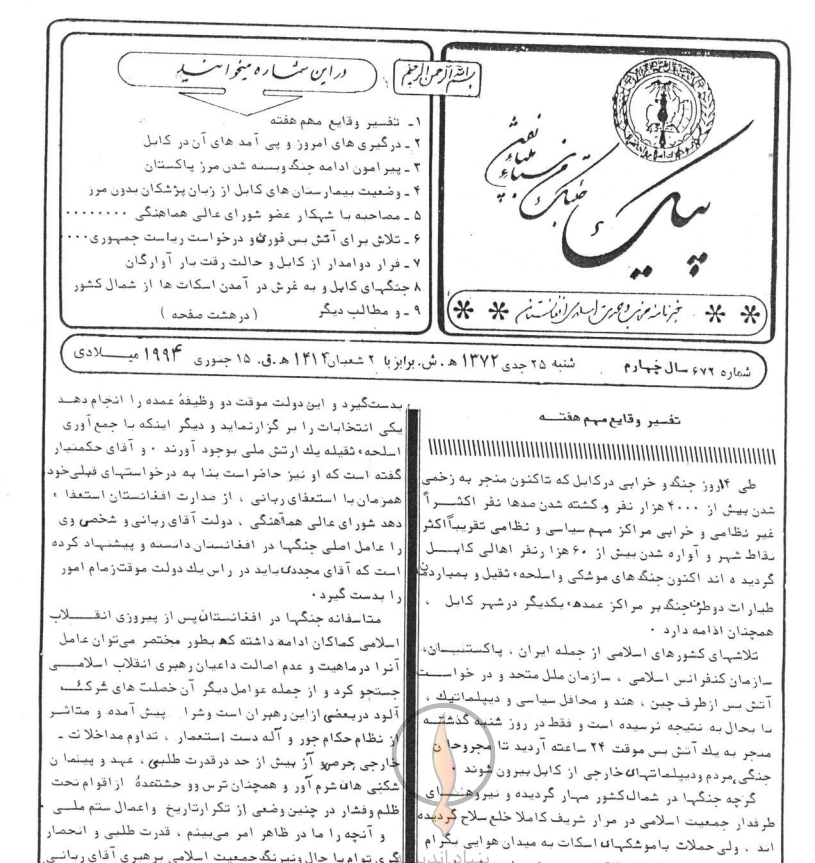 بسم الله الرحمن الرحیم
پیک
خبرنامه حزب وحدت اسلامی افغانستان
در این شماره میخوانید
۱ـ تفسیر وقایع مهم هفته
۲ـ درگیری های امروز و پی آمد های آن در کابل
۳ـ پیرامون ادامه جنگ وبسته شدن مرز پاکستان
۴ـ وضعیت بیمارستان های کابل از زبان پزشکان بدون مرز
۵ـ مصاحبه با شهکار عضو شورای عالی هماهنگی ........
۶ـ تلاش برای آتش بس فوری و درخواست ریاست جمهوری....
۷ـ فرار دوامدار از کابل و حالت رقت بار آوارگان
۸ جنگهای کابل و به غرش در آمدن اسکات ها از شمال کشور
۹ـ و مطالب دیگر ( در هشت صفحه )
شماره ۶۷۲ سال چهارم شنبه ۲۵ جدی ۱۳۷۲ ه.ش. برابر با ۲ شعبان ۱۴۱۴ ه.ق. ۱۵ جنوری ۱۹۹۴ میلادی
تفسیر وقایع مهم هفته
طی ۱۴روز جنگ و خرابی در کابل که تاکنون منجر به زخمی
شدن بیش از ۴۰۰۰ هزار نفر و کشته شدن صدها نفر اکثراً
غیر نظامی و خرابی مراکز مهم سیاسی و نظامی تقریباً اکثر
نقاط شهر و آواره شدن بیش از ۶۰ هزار نفر اهالی کابل
گردید ه اند اکنون جنگ های موشکی و اسلحه ثقیل و بمباردن
طیارات دوطرف جنگ بر مراکز عمده یکدیگر در شهر کابل ،
همچنان ادامه دارد .
تلاشهای کشورهای اسلامی از جمله ایران ، پاکستان،
سازمان کنفرانس اسلامی ، سازمان ملل متحد و در خواست
آتش بس ازطرف چین ، هند و محافل سیاسی و دیپلماتیک ،
تا بحال به نتیجه نرسیده است و فقط در روز شنبه گذشته
منجر به یك آتش بس موقت ۲۴ ساعته گردید تا مجروحان
جنگی،مردم ودیپلماتهای خارجی از کابل بیرون شوند .
گرچه جنگها در شمال کشور مهار گردیده و نیروهای
طرفدار جمعیت اسلامی در مزار شریف کاملا خلع سلاح گردیده
اند ، ولی حملات باموشکهای اسکات به میدان هوایی بگرام
بدست گیرد و این دولت موقت دو وظیفهٔ عمده را انجام دهد
یکی انتخابات را بر گزارنماید و دیگر اینکه با جمع آوری
اسلحه ثقیله یك ارتش ملی بوجود آورند . و آقای حکمتیار
گفته است که او نیز حاضر است بنا به درخواستهای قبلی خود
همزمان با استعفای ربانی ، از صدارت افغانستان استعفا
دهد شورای عالی هماهنگی ، دولت آقای ربانی و شخص وی
را عامل اصلی جنگها در افغانستان دانسته و پیشنهاد کرده
است که آقای مجددی باید در راس یك دولت موقت زمام امور
را بدست گیرد .
متاسفانه جنگها در افغانستان پس از پیروزی انقلاب
اسلامی کماکان ادامه داشته که بطور مختصر می توان عامل
آنرا درماهیت و عدم اصالت داعیان رهبری انقلاب اسلامی
جستجو کرد و از جمله عوامل دیگر آن خصلت های شرک
آلود دربعضی ازاین رهبران است وشرا پیش آمده و متاثر
از نظام حکام جور و آله دست استعمار ، تداوم مداخلات ـ
خارجی حرص و آز بیش از حد درقدرت طلبی ، عهد و پیمان
شکنی های شرم آور و همچنان ترس وو حشتعدهٔ ازاقوام تحت
ظلم وفشار در چنین وضعی از تکرارتاریخ واعمال ستم ملی .
و آنچه را ما در ظاهر امر می بینم ، قدرت طلبی و انحصار
گری توام با حال ونیرنگ جمعیت اسلامی برهبری آقای ربانی